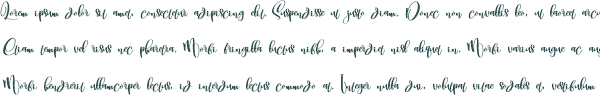 Lorem ipsum dolor sit amet, consectetur adipiscing elit. Suspendisse ut justo diam. Donec non convallis leo, ut laoreet arcu
Etiam tempor vel risus nec pharetra. Morbi fringilla luctus nibh, a imperdiet nisl aliquet in. Morbi varius augue ac aug
Morbi hendrerit ullamcorper lectus, id interdum lectus commodo at. Integer nulla dui, volutpat vitae sodales et, vestibulum